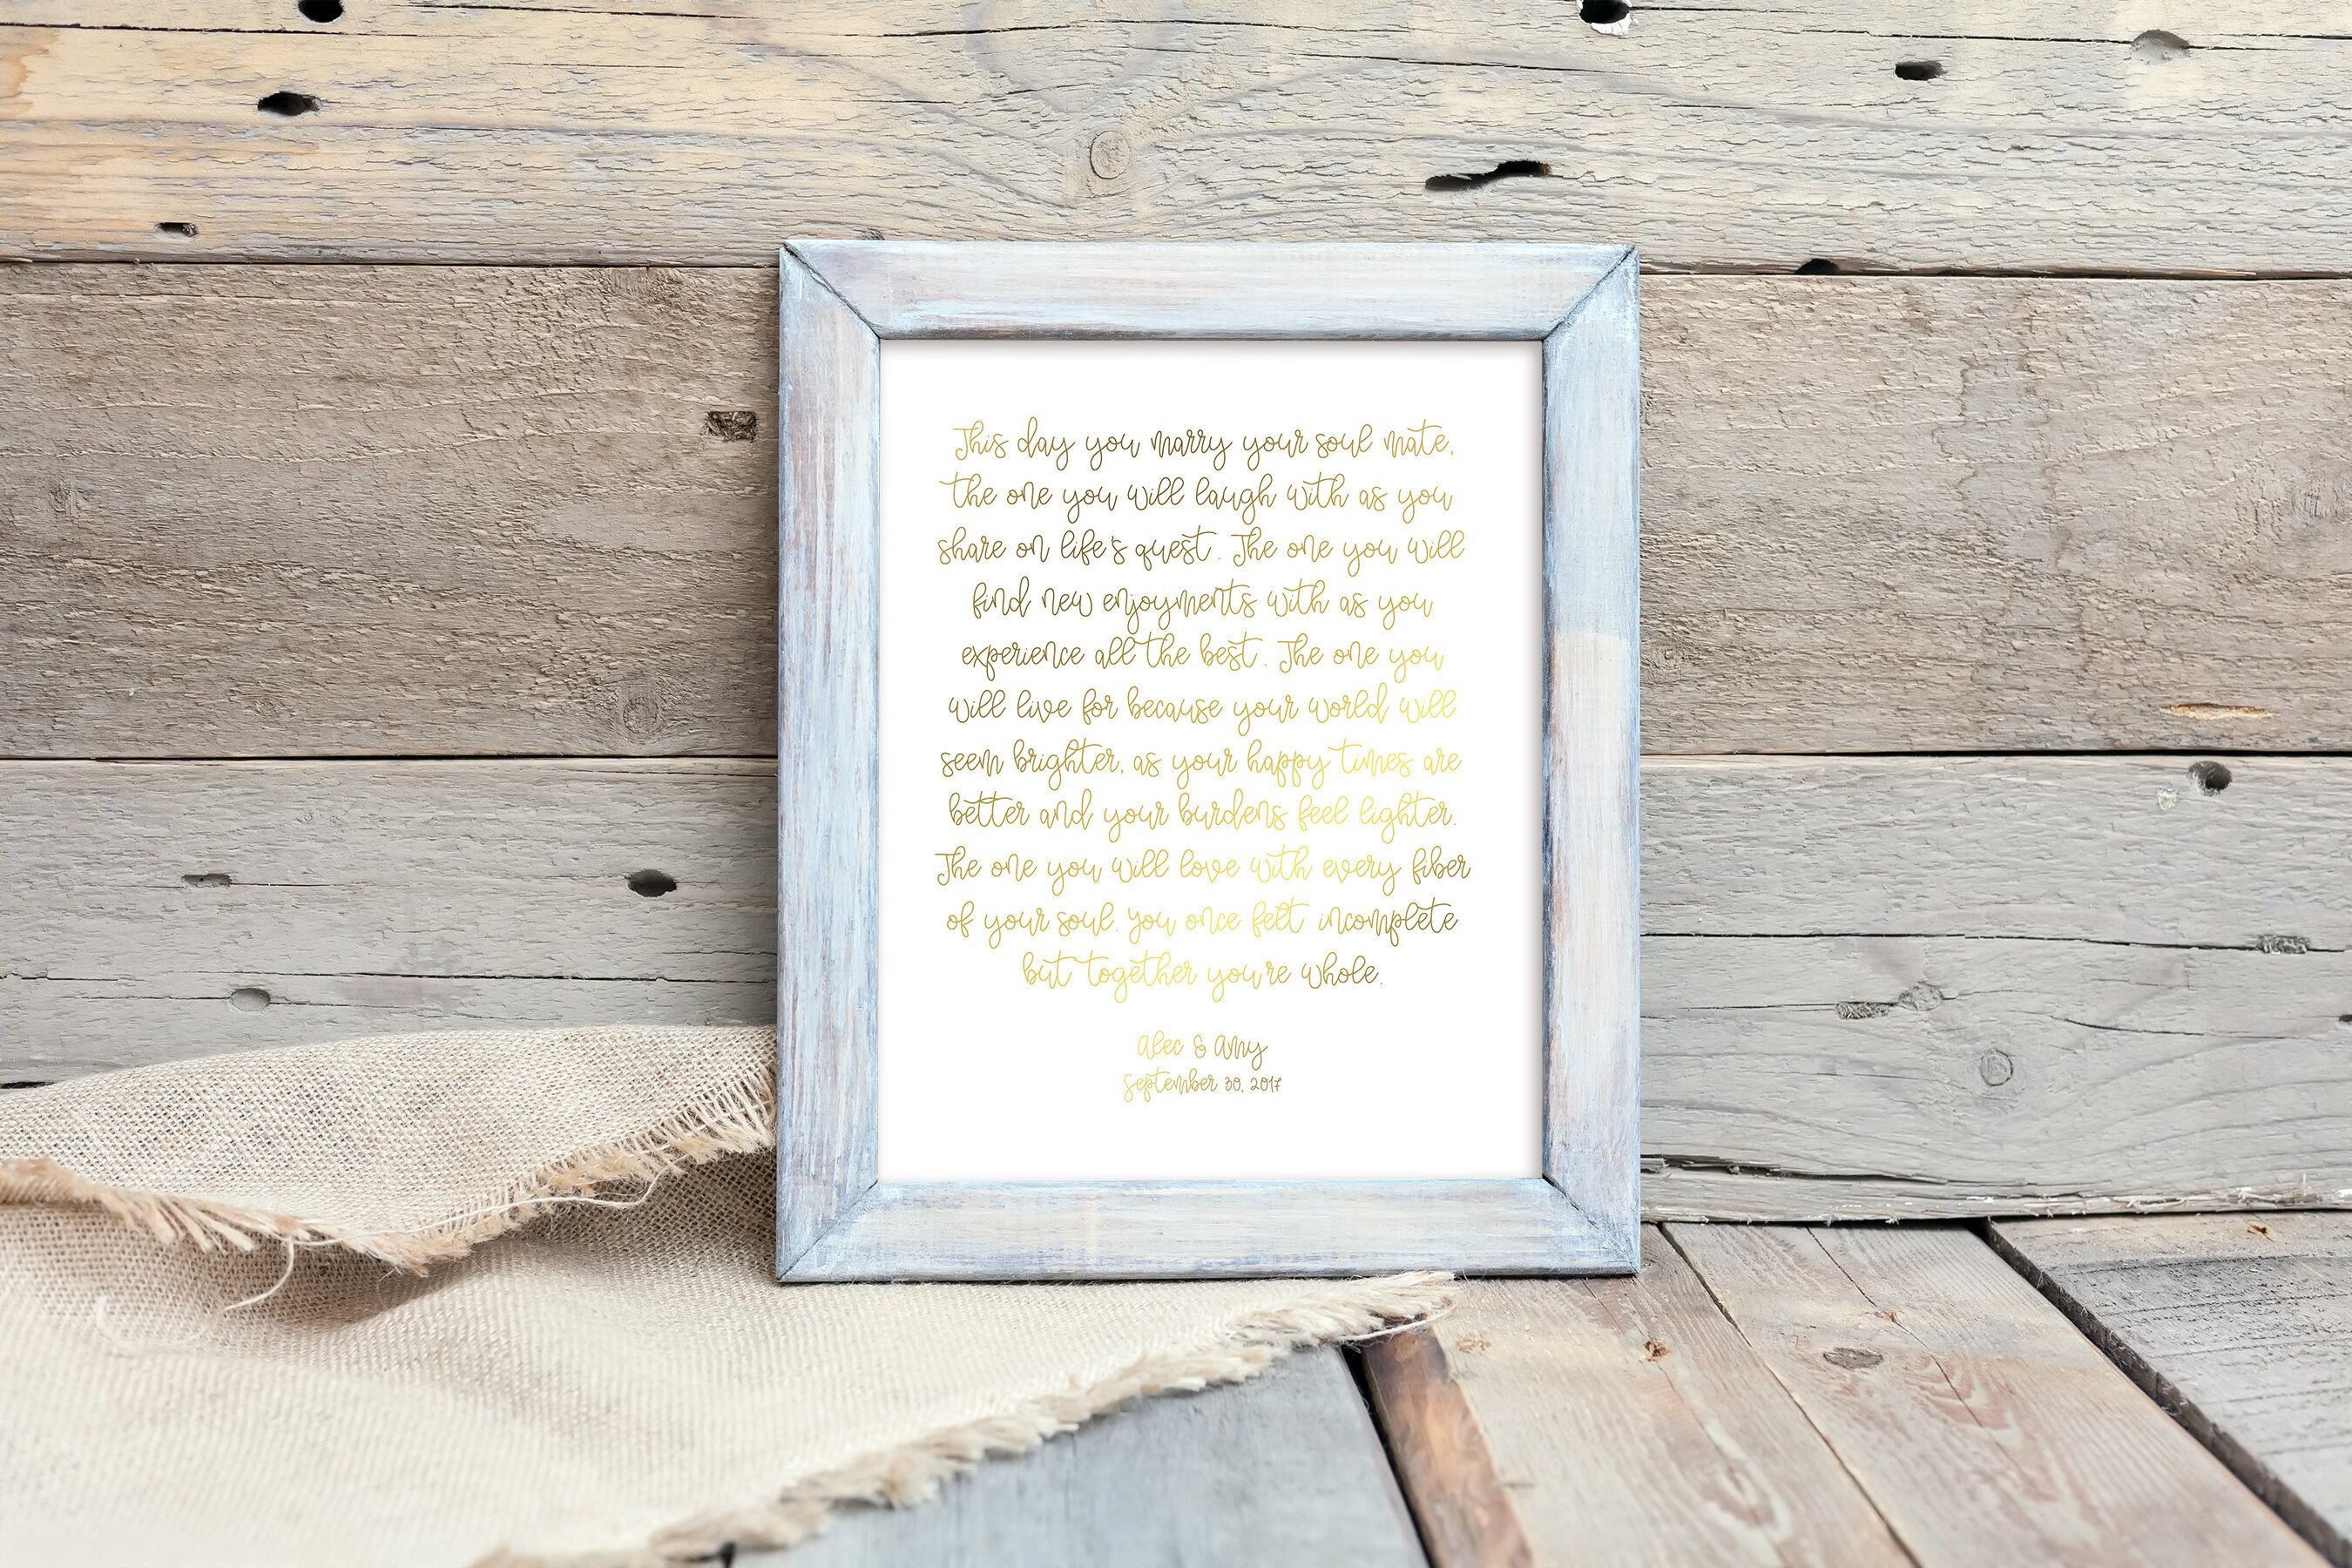 This day you marry your soul mate,
the one you will laugh with as you
share on life's quest. The one you will
find new enjoyments with as you
experience all the best. The one you
will live for because your world will
seem brighter, as your happy times are
better and your burdens feel lighter.
The one you will love with every fiber
of your soul. You once felt incomplete
but together you're whole.
Alec & Amy
September 30, 2017